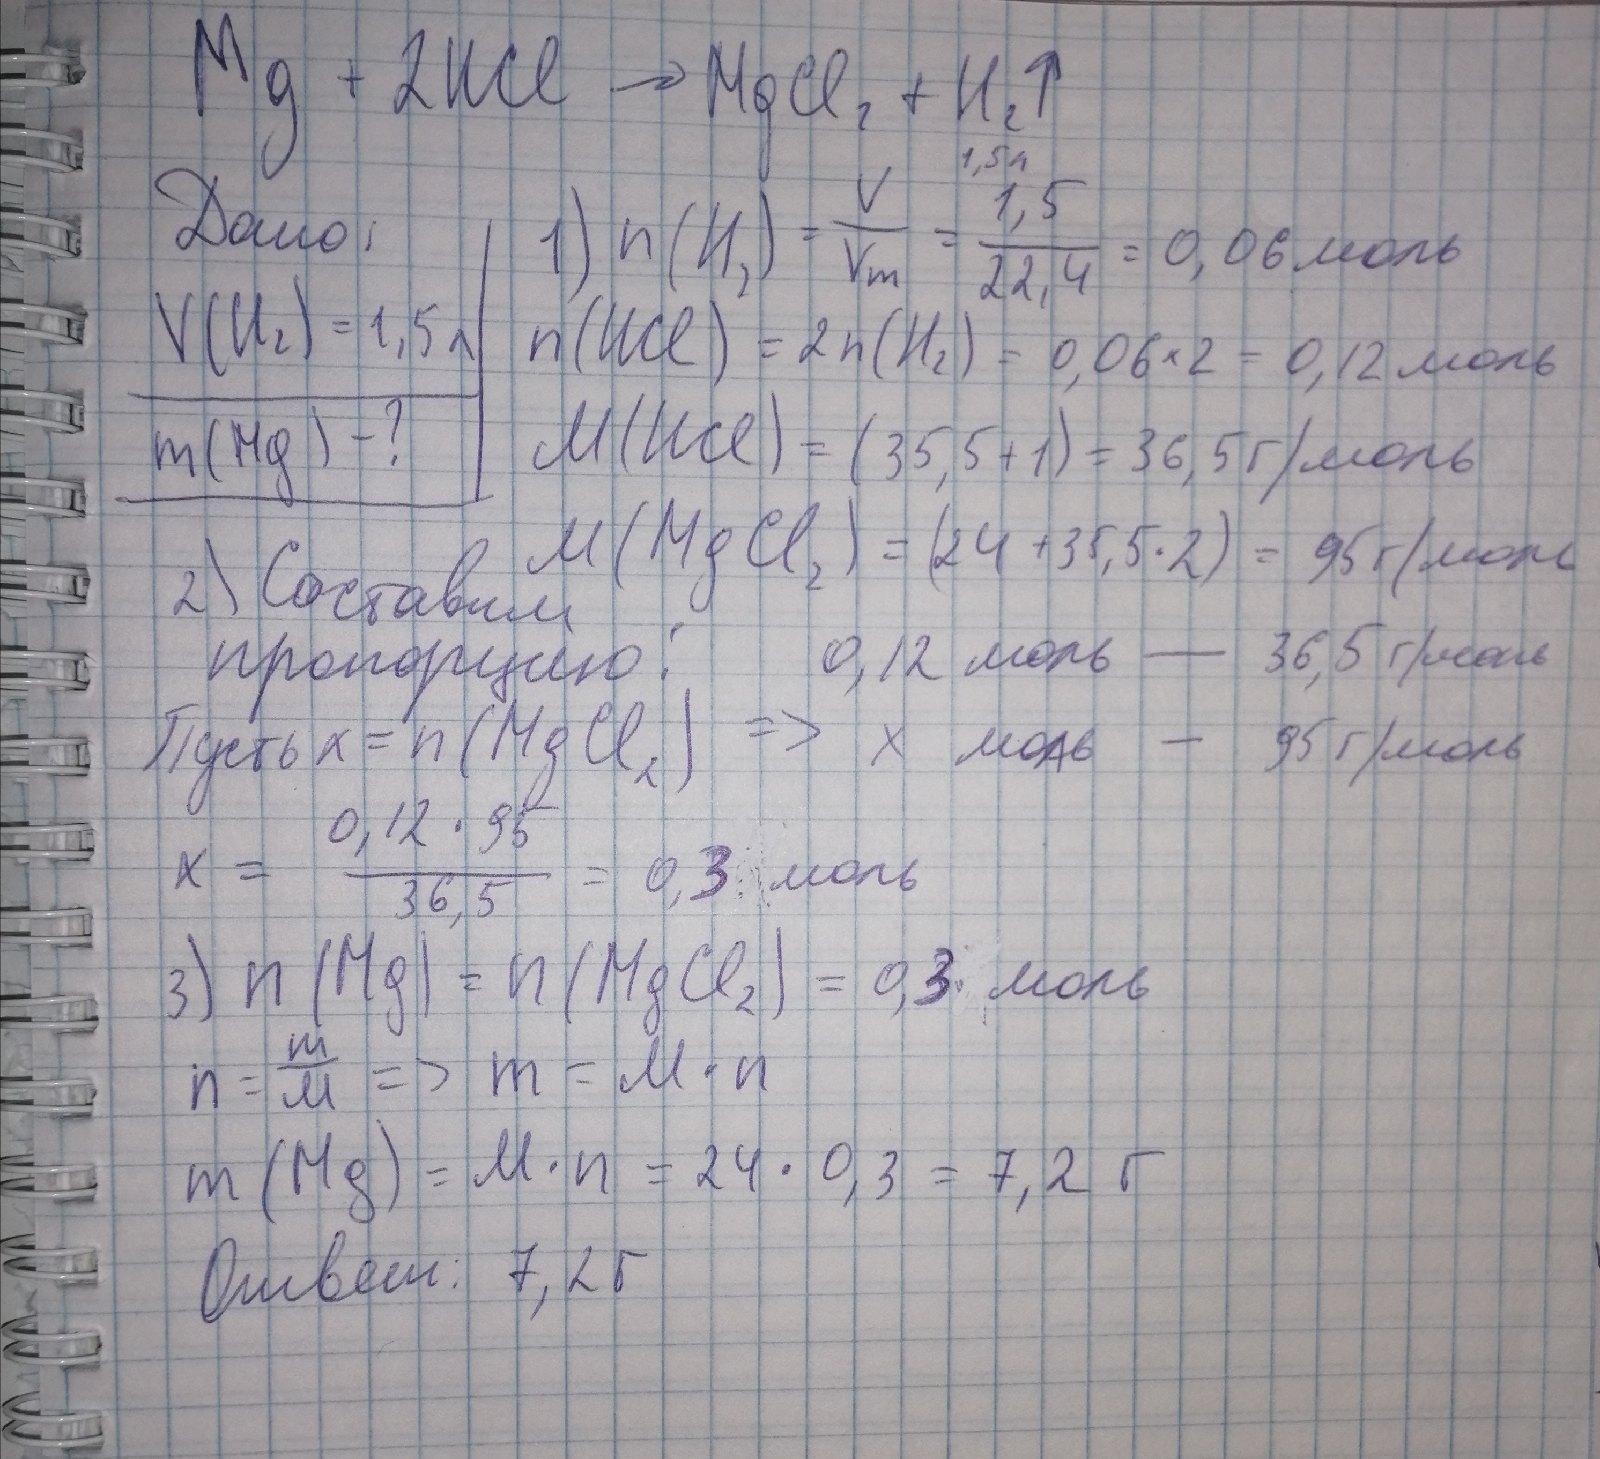 Mg + 2HCl → MgCl₂ + H₂↑
1,5л
Дано:
V(H₂) = 1,5л
m(Mg) - ?
1) n(H₂) = V/Vm = 1,5/22,4 = 0,06 моль
n(HCl) = 2n(H₂) = 0,06×2 = 0,12 моль
M(HCl) = (35,5+1) = 36,5 г/моль
M(MgCl₂) = (24+35,5·2) = 95 г/моль
2) Составим
пропорцию:
0,12 моль — 36,5 г/моль
Пусть x = n(MgCl₂) => x моль — 95 г/моль
x = 0,12·95/36,5 = 0,3 моль
3) n(Mg) = n(MgCl₂) = 0,3 моль
n = m/M => m = M·n
m(Mg) = M·n = 24·0,3 = 7,2 г
Ответ: 7,2 г